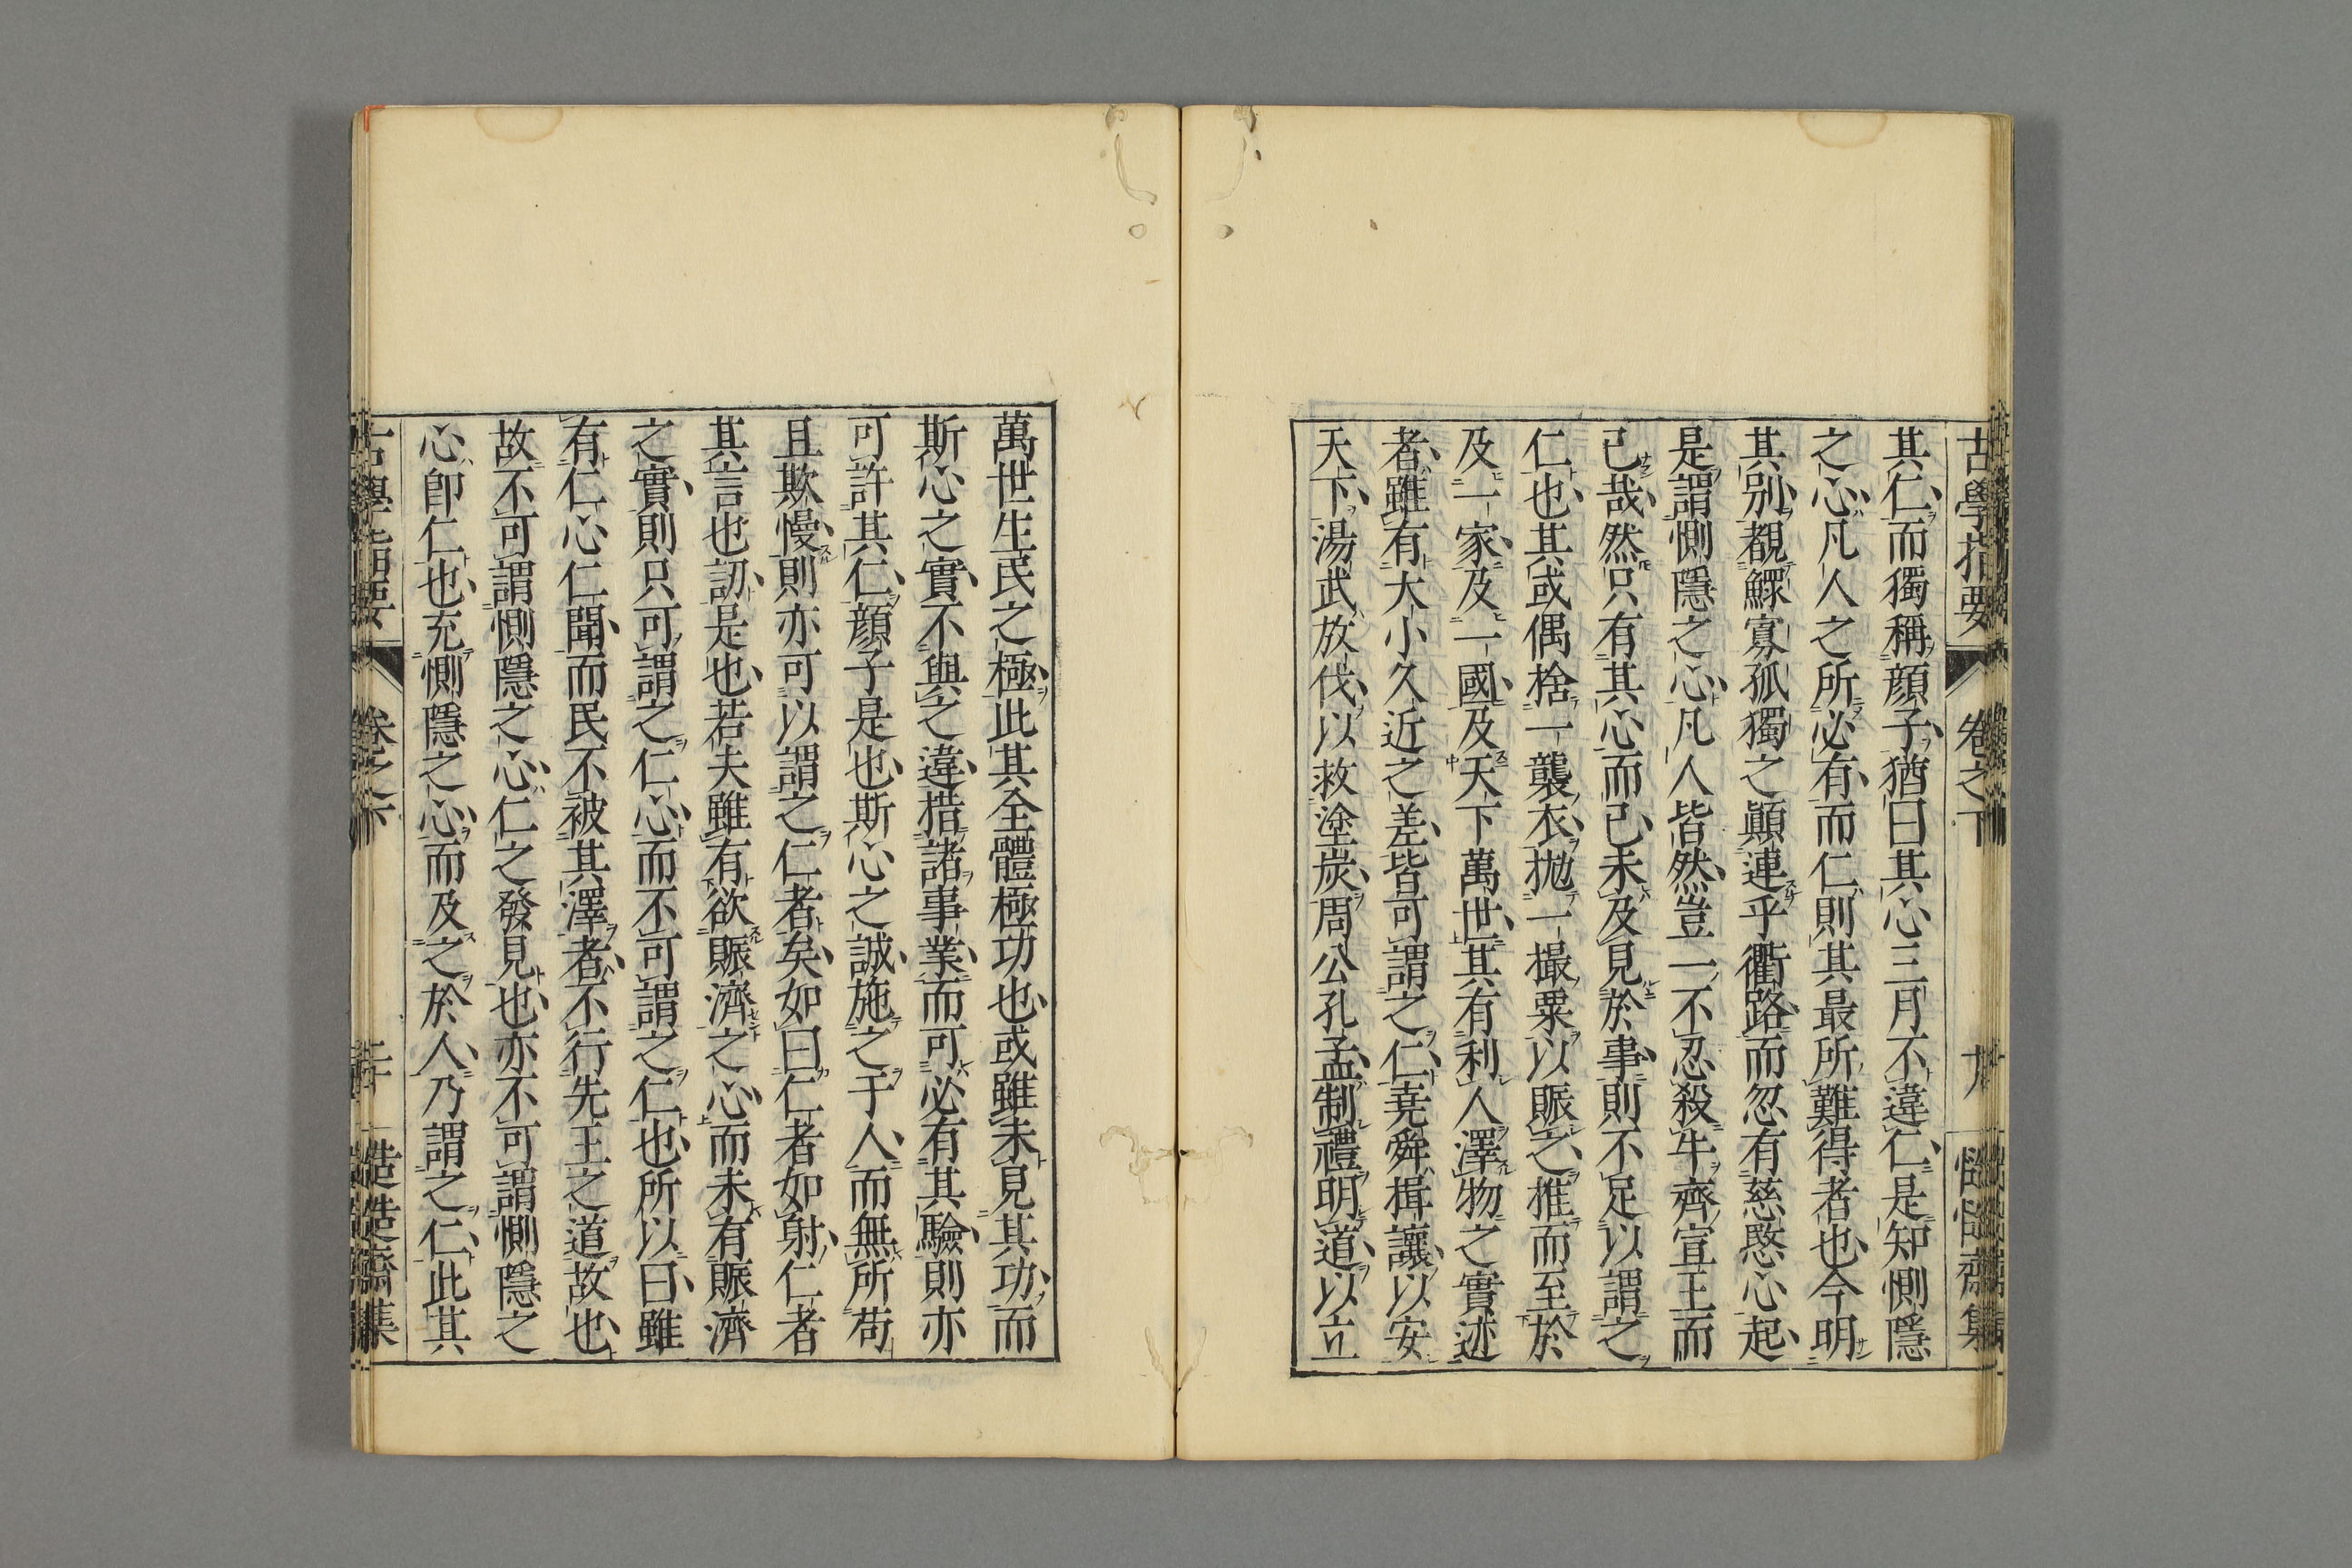 古學指要
卷之下
其仁而獨稱顔子猶曰其心三月不違仁是知惻隱
之心凡人之所必有而仁則其最所難得者也今明
其別覩鰥寡孤獨之顚連乎衢路而忽有慈愍心起
是謂惻隱之心凡人皆然豈一不忍殺牛齊宣王而
已哉然只有其心而已未及見於事則不足以謂之
仁也其或偶捨一襲衣拋一撮粟以賑之推而至於
及一家及一國及天下萬世其有利人澤物之實述
者雖有大小久近之差皆可謂之仁堯舜揖讓以安
天下湯武放伐以救塗炭周公孔孟制禮明道以立
萬世生民之極此其全體極功也或雖未見其功而
斯心之實不與之違措諸事業而可必有其驗則亦
可許其仁顔子是也斯心之誠施之于人而無所苟
且欺慢則亦可以謂之仁者矣如曰仁者如射仁者
其言也訒是也若夫雖有欲賑濟之心而未有賑濟
之實則只可謂之仁心而不可謂之仁也所以曰雖
有仁心仁聞而民不被其澤者不行先王之道故也
故不可謂惻隱之心仁之發見也亦不可謂惻隱之
心卽仁也充惻隱之心而及之於人乃謂之仁此其
古學指要
卷之下